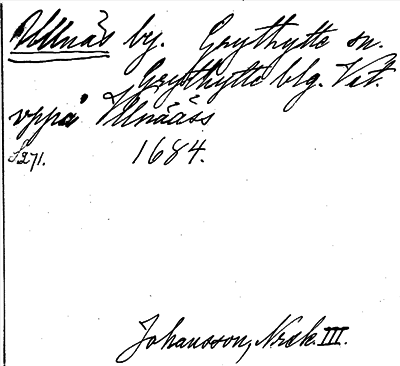 Ullnäs by. Grythytte sn.
Grythytte blg. Vät.
vppå Ullnääs
S 271. 1684.
Johansson, Norsk. III.